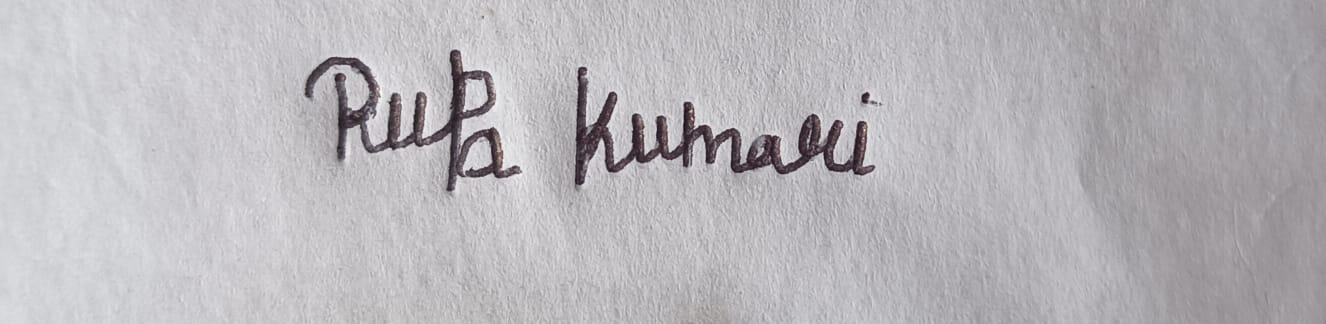 Rupa Kumari